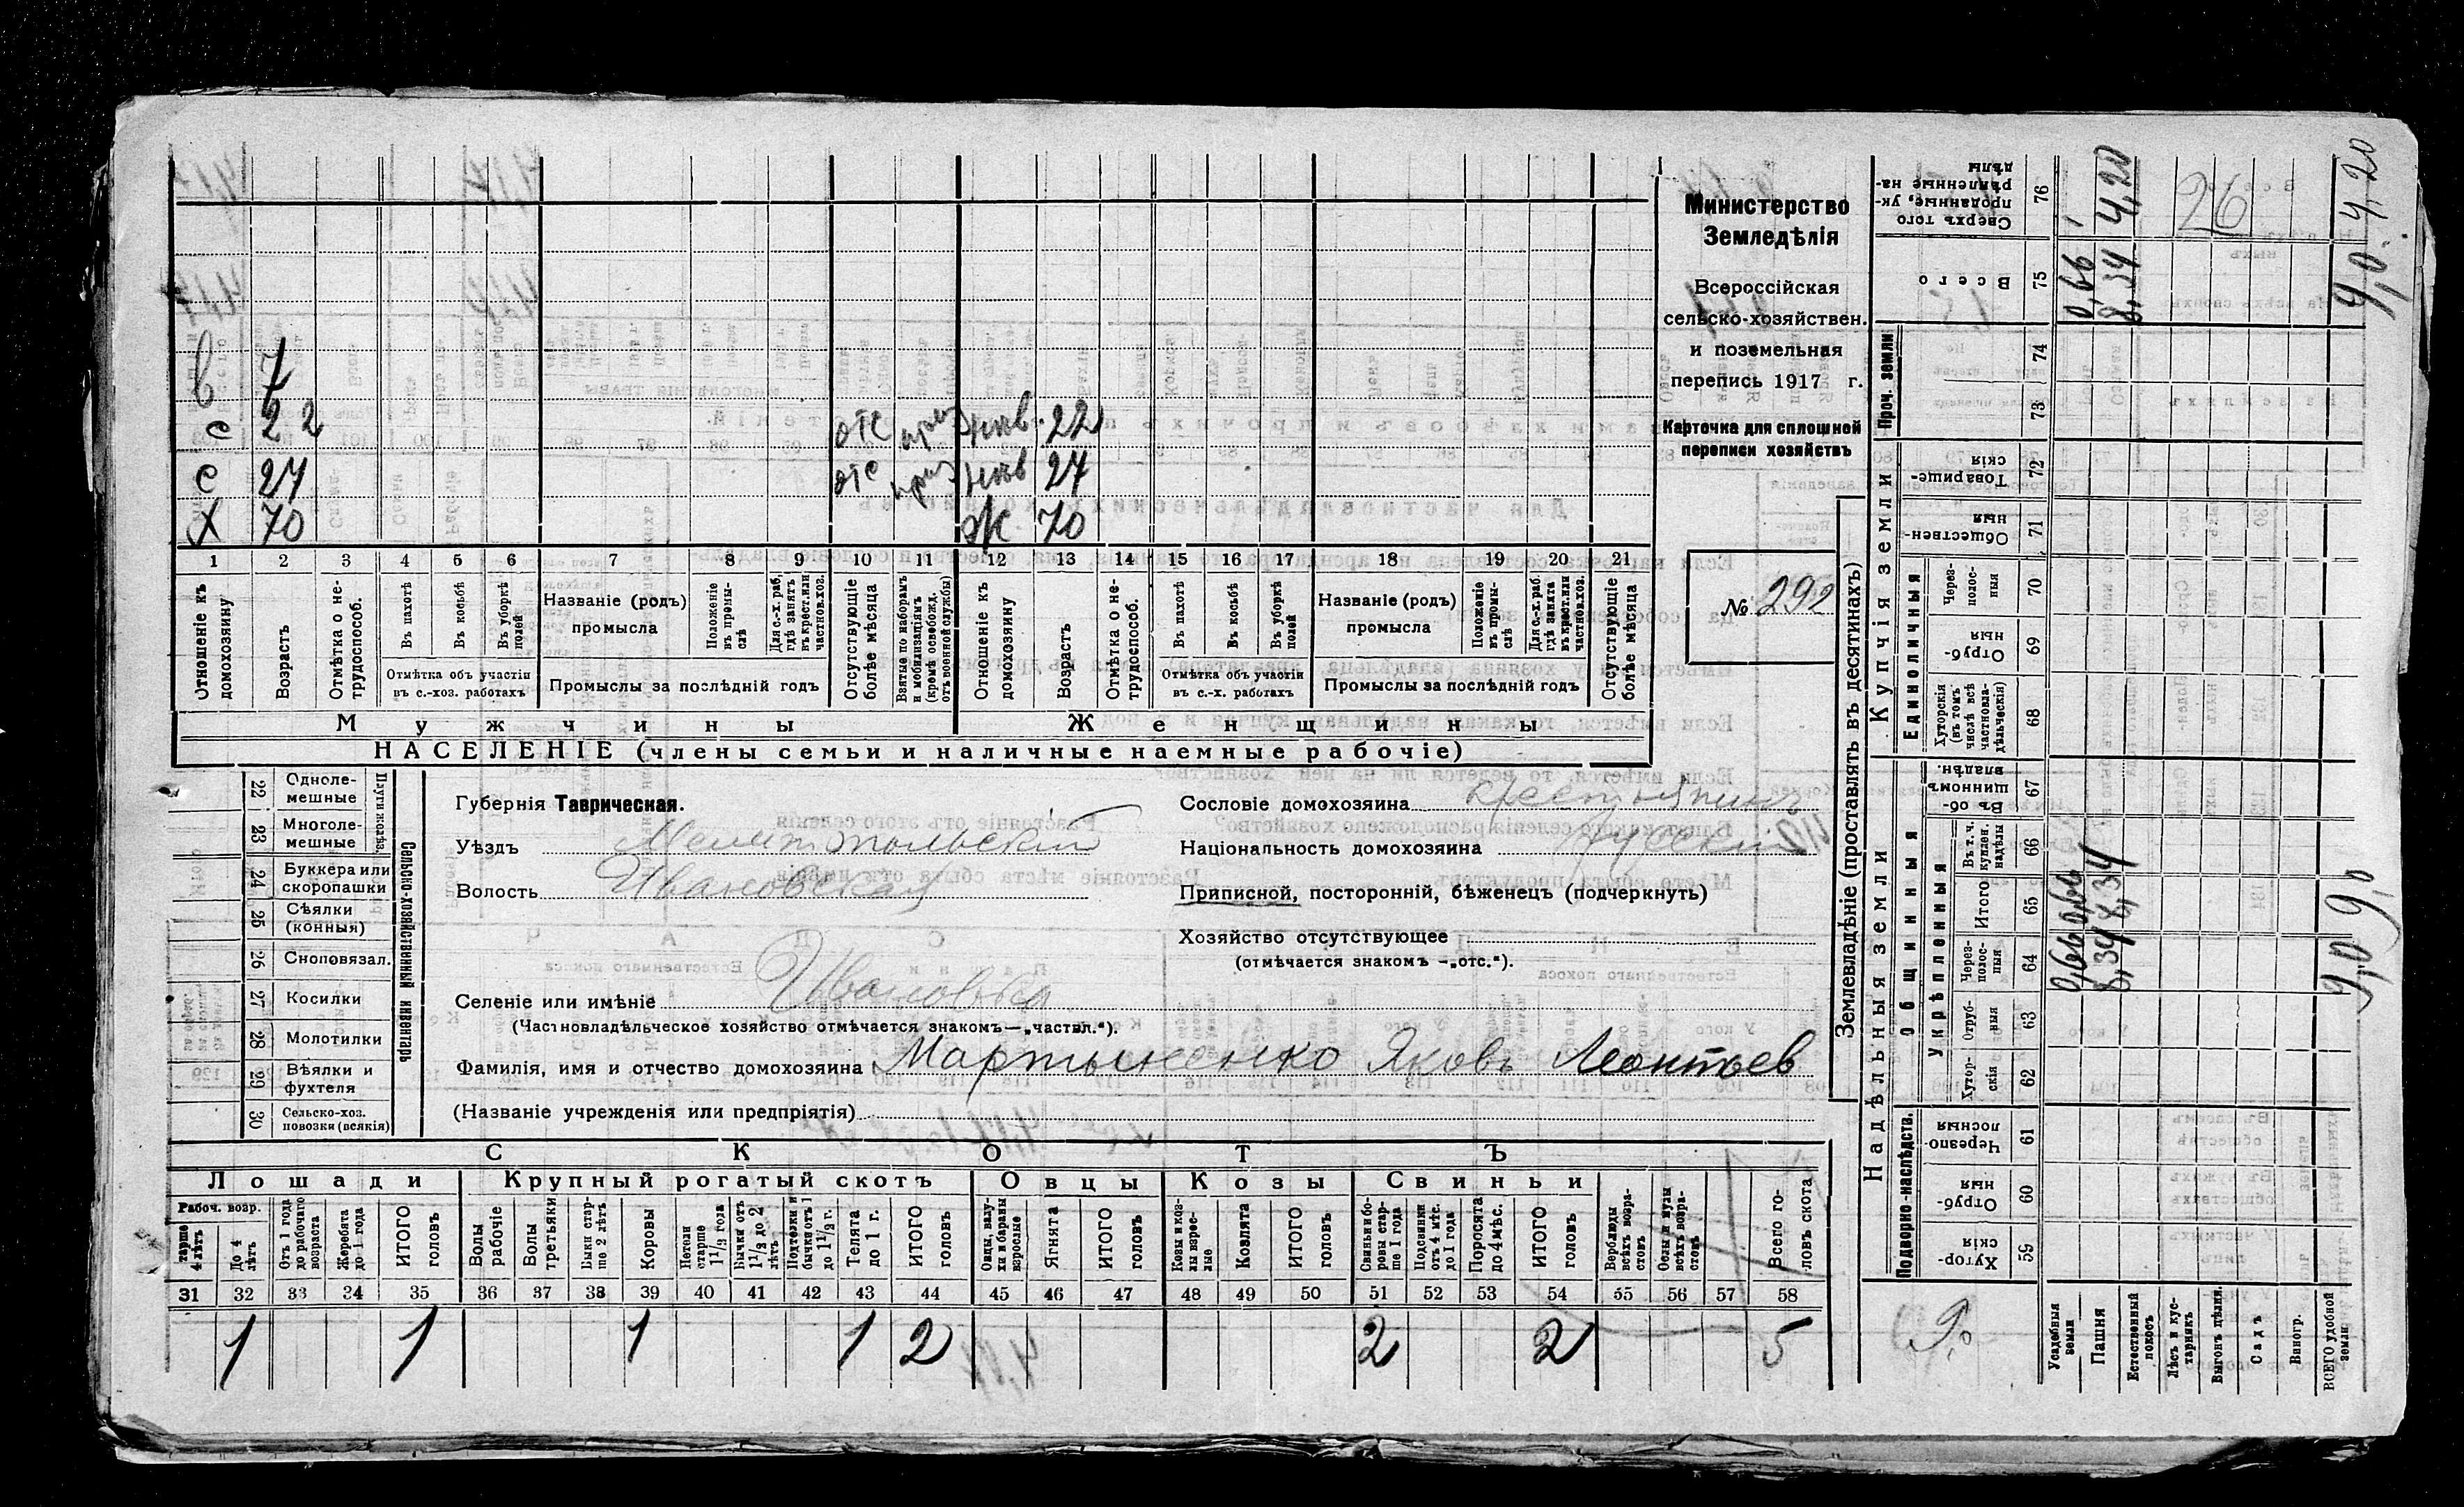 в 7
с 22 отс приз нев. 22
с 27 отс приз нев 27
х 70 ж 70
1 2 3 4 5 6 7 8 9 10 11 12 13 14 15 16 17 18 19 20 21
Отношеніе къ домохозяину
Возрастъ
Отмѣтка о не-трудоспособ.
Въ пахотѣ
Въ косьбѣ
Въ уборкѣ полей
Отмѣтка объ участіи въ с.-хоз. работахъ
Названіе (родъ) промысла
Положеніе въ промы-слѣ
Для с.-х. раб, гдѣ занятъ въ крест. или частнов. хоз.
Промыслы за послѣдній годъ
Отсутствующіе болѣе мѣсяца
Взятые по наборамъ и мобилизаціямъ (кромѣ освобожд. отъ военной службы)
Отношеніе къ домохозяину
Возрастъ
Отмѣтка о не-трудоспособ.
Въ пахотѣ
Въ косьбѣ
Въ уборкѣ полей
Отмѣтка объ участіи въ с.-х. работахъ
Названіе (родъ) промысла
Положеніе въ промы-слѣ
Для с.-х. раб. гдѣ занята въ крест. или частнов. хоз.
Промыслы за послѣдній годъ
Отсутствующіе болѣе мѣсяца
Мужчины Женщины
НАСЕЛЕНІЕ (члены семьи и наличные наемные рабочіе)
Министерство
Земледѣлія
Всероссійская
сельско-хозяйствен.
и поземельная
перепись 1917 г.
Карточка для сплошной
переписи хозяйствъ
№ 292
22 Однолемешные
23 Многолемешные
Плуги желѣз.
24 Буккера или скоропашки
25 Сѣялки (конныя)
26 Сноповязал.
27 Косилки
28 Молотилки
29 Вѣялки и фухтеля
30 Сельско-хоз. повозки (всякія)
Сельско-хозяйственный инвентарь
Губернія Таврическая.
Уѣздъ Мелитопольскій
Волость Ивановская
Селеніе или имѣніе Ивановка
(Частновладѣльческое хозяйство отмѣчается знакомъ—„частвл.“).
Фамилія, имя и отчество домохозяина Мартыненко Яковъ Леонтьев
(Названіе учрежденія или предпріятія)
Сословіе домохозяина крестьянинъ
Національность домохозяина русский
Приписной, посторонній, бѣженецъ (подчеркнуть)
Хозяйство отсутствующее
(отмѣчается знакомъ —„отс.“).
СКОТЪ
Лошади Крупный рогатый скотъ Овцы Козы Свиньи
Рабоч. возр.
Старше 4 лѣтъ
До 4 лѣтъ
Отъ 1 года до рабочаго возраста
Жеребята до 1 года
ИТОГО головъ
Волы рабочіе
Волы третьяки
Быки стар-ше 2 лѣтъ
Коровы
Нетели старше 1½ года
Бычки отъ 1½ до 2 лѣтъ
Подтелки и бычки отъ 1 до 1½ г.
Телята до 1 г.
ИТОГО головъ
Овцы, валу-хи и бараны взрослые
Ягнята
ИТОГО головъ
Козы и коз-лы взрос-лые
Козлята
ИТОГО головъ
Свиньи и бо-ровы стар-ше 1 года
Подсвинки отъ 4 мѣс. до 1 года
Поросята до 4 мѣс.
ИТОГО головъ
Верблюды всѣхъ возра-стовъ
Ослы и мулы всѣхъ возра-стовъ
Всего го-ловъ скота
31 32 33 34 35 36 37 38 39 40 41 42 43 44 45 46 47 48 49 50 51 52 53 54 55 56 57 58
1 1 1 1 2 2 2 5
Землевладѣніе (проставлять въ десятинахъ)
Надѣльныя земли Купчія земли Проч. земли
Подворно-наслѣдств.
Общинныя
Укрѣпленныя
Единоличныя
Хутор-скія 59
Отруб-ныя 60
Черезпо-лосныя 61
Хутор-скія 62
Отруб-ныя 63
Через-полос-ныя 64
Итого 65
Въ т. ч. куплен. надѣлы 66
Въ об-щинномъ владѣн. 67
Хуторскія (въ томъ числѣ всѣ частновла-дѣльческія) 68
Отруб-ныя 69
Через-полос-ныя 70
Обществен-ныя 71
Товарище-скія 72
73
74
Всего 75
Сверхъ того проданные, ук-рѣпленные на-дѣлы 76
Усадебныя земли 0,66 0,66 0,66
Пашня 8,34 8,34 8,34 4,20
Естественный покосъ
Лѣсъ и кус-тарникъ
Выгонъ цѣлин.
Садъ
Виногр.
ВСЕГО удобной земли 9,0 9,0 9,0 4,20
26
9,0